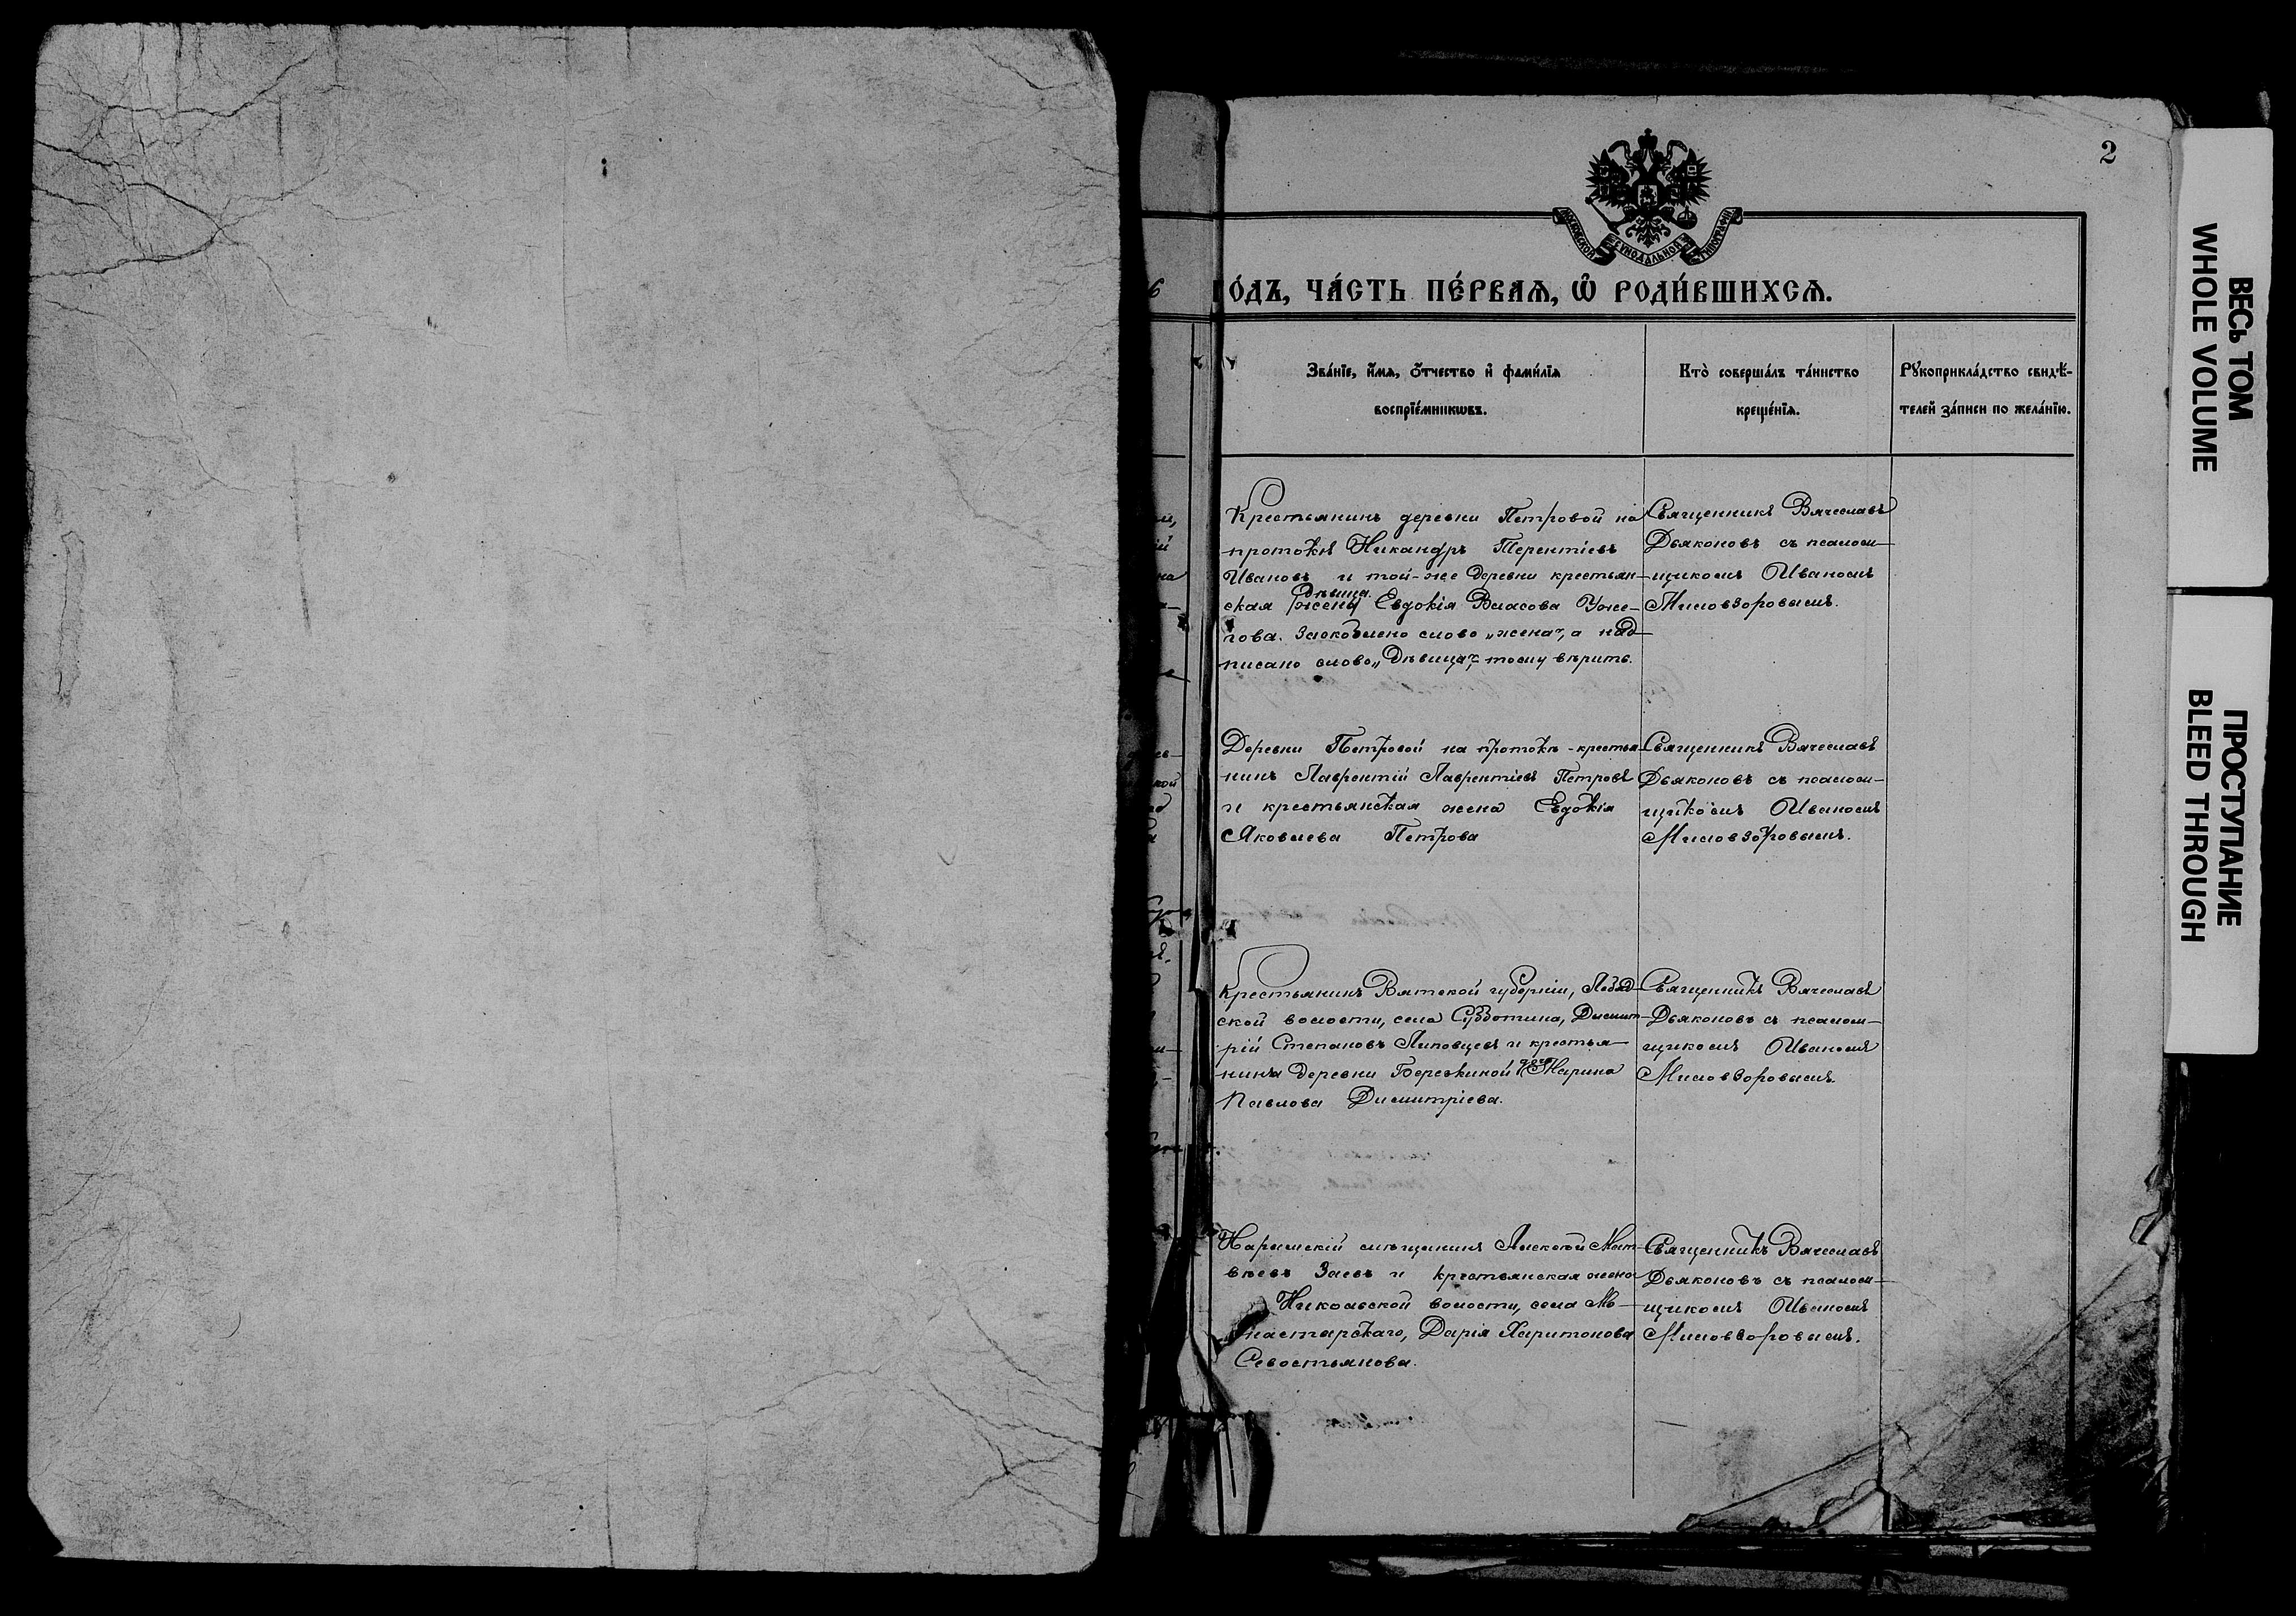 2
МОСКОВСКОЙ СѴНОДАЛЬНОЙ ТИПОГРАФІИ
6
О́ДЪ, ЧА́СТЬ ПЕ́РВАѦ, Ѡ҃ РОДИ́ВШИХСѦ.
Зва́нїе, и҆́мѧ, ѻ҆́тчество и҆ фами́лїѧ
воспрїе́мникѡвъ.
Кто̀ соверша́лъ та́инство
креще́нїѧ.
Рꙋкоприкла́дство свидѣ́-
телей за́писи по жела́нїю.
Крестьянинъ деревни Петровой на
протокѣ Никандръ Терентіевъ
Ивановъ и той-же деревни крестьян-
дѣвица
ская (жена) Евдокія Власова Уже-
гова. Заскоблено слово „жена", а над-
писано слово „дѣвица", тому вѣрить.
Священникъ Вячеславъ
Дьяконовъ съ псалом-
щикомъ Иваномъ
Миловзоровымъ.
Деревни Петровой на протокѣ - крестья-
нинъ Лаврентій Лаврентіевъ Петровъ
и крестьянская жена Евдокія
Яковлева Петрова
Священникъ Вячеславъ
Дьяконовъ съ псалом-
щикомъ Иваномъ
Миловзоровымъ.
Крестьянинъ Вятской губерніи,
ской волости, села Субботина, Димит-
рій Степановъ Липовцевъ и крестья-
нина деревни Бережиной дочь Марина
Павлова Димитріева.
Священникъ Вячеславъ
Дьяконовъ съ псалом-
щикомъ Иваномъ
Миловзоровымъ.
Нарымскій мѣщанинъ Алексѣй Мат-
вѣевъ Заевъ и крестьянская жена
Никольской волости, села Мо-
настырскаго, Дарія Харитонова
Севостьянова.
Священникъ Вячеславъ
Дьяконовъ съ псалом-
щикомъ Иваномъ
Миловзоровымъ.
ВЕСЬ ТОМ
WHOLE VOLUME
ПРОСТУПАНИЕ
BLEED THROUGH